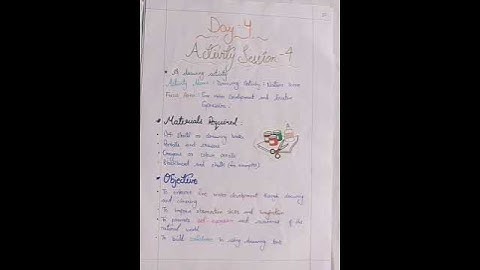 Day-4
Activity Session-4
A drawing activity
Activity Name: Drawing Activity: Nature Scene
Focus Area: Fine motor Development and Creative
Expression.
Materials Required:
A4 sheets or drawing books
Pencils and erasers
Crayons or colour pencils
Blackboard and chalk (for examples)
Objective
To enhance fine motor development through drawing and
colouring
To improve observation skills and imagination
To promote self-expression and awareness of the
natural world
To build confidence in using drawing tools